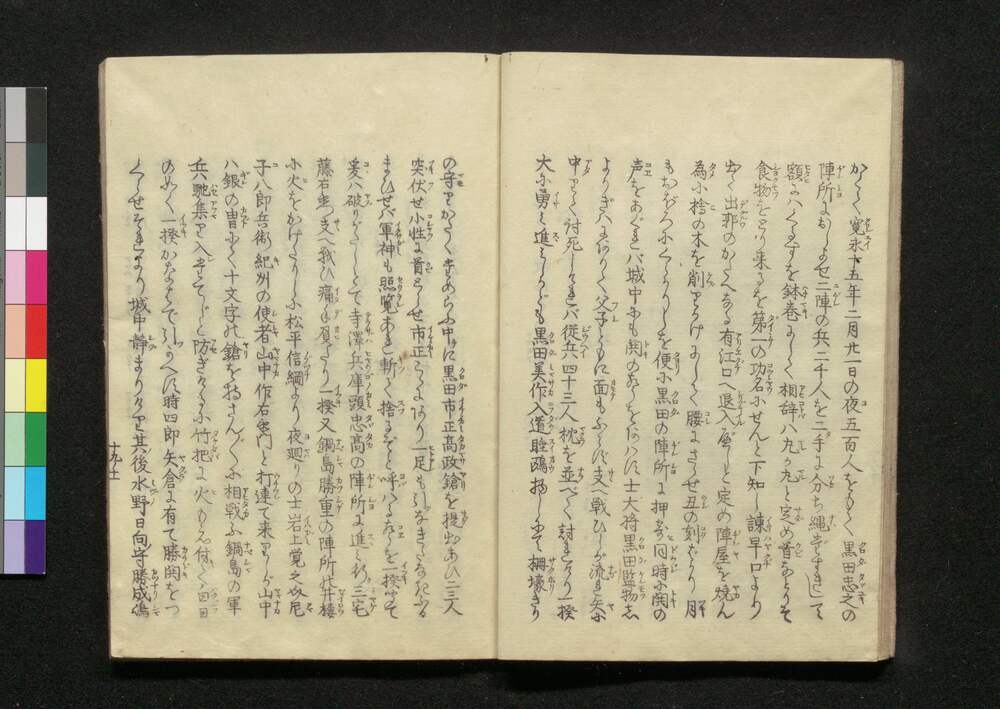 かくて寛永十五年二月廿一日の夜五百人をもつて黒田忠之の
陣所におしよせ二陣の兵二千人を二手に分ち縄をたすきにして
額にハくるすを鉢巻にして相辞ハ丸か丸と定め首をとらず
食物をとり来るを第一の功名にせんと下知し諫早口より
出て出邪のかたへある有江口へ退入べしと定め陣屋を焼ん
為に捨の木を削りかけにして腰にさゝせ丑の刻をかり
もおぼろにくらかりしを便に黒田の陣所に押寄同時に鬨の
声をあぐれバ城中にも鬨のあらそハず士大将黒田監物
よりきハまりて父子ともに面もふらず支へ戦ひしが流れ矢に
中りて討死しけれバ従兵四十三人枕を並べて討れけり一揆
大に勇ミ進といへども黒田美作入道睡鴎 柵壕きり
の守りかたく 中に黒田市正高政鎗を提出あひ二三人
突伏せ小性に首とらせ市正 一足も引
まハせバ軍神も照覧あれ斬て捨るぞと呼ハるを一揆
爰ハ破りがたしとて寺澤兵庫頭忠高の陣所に進ミ行三宅
藤右衛門支へ戦ひ痛手負たり一揆又鍋島勝重の陣所 井楼
に火をかけたりしに松平信綱より夜廻りの士岩上覚之丞尼
子八郎兵衛紀州の使者山中作右衛門と打連て来りしが山中
ハ銀の冑にて十文字の鎗を持さん〲に相戦ふ鍋島の軍
兵馳集り入 じと防ぎけるに竹把に火もえ付て白日
のごとく一揆かなハずして引かへす時四郎矢倉に有て勝鬨をつ
くらせそれより城中静まりけり其後水野日向守勝成
十九ノ七